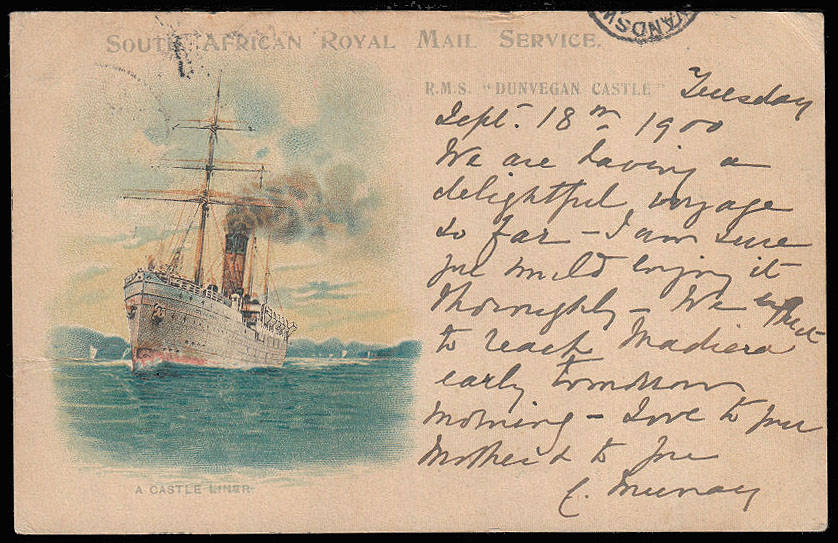 WANDSW
SOUTH AFRICAN ROYAL MAIL SERVICE.
R.M.S. "DUNVEGAN CASTLE"
Tuesday
Sept. 18th 1900
We are having a
delightful voyage
so far – I am sure
you would enjoy it
thoroughly – We expect
to reach Madiera
early tomorrow
morning – Love to your
Mother & to you
C. Murray
A CASTLE LINER